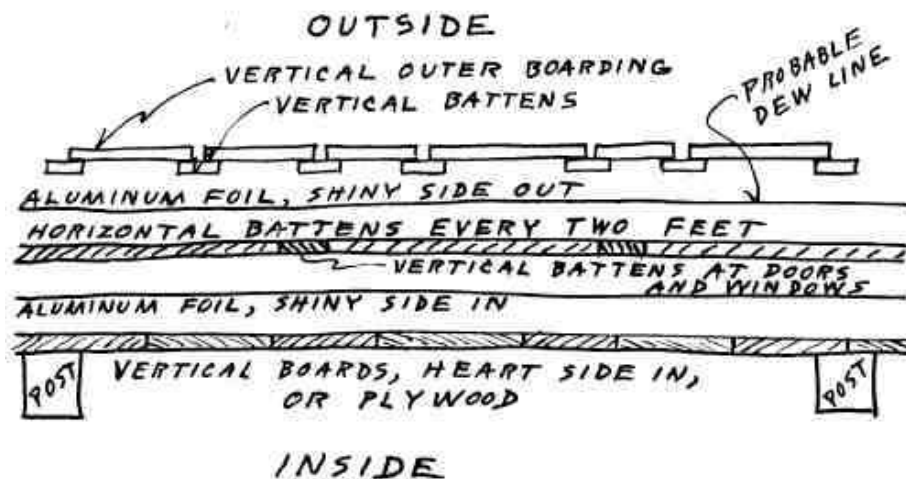 OUTSIDE
VERTICAL OUTER BOARDING
VERTICAL BATTENS
PROBABLE
DEW LINE
ALUMINUM FOIL, SHINY SIDE OUT
HORIZONTAL BATTENS EVERY TWO FEET
VERTICAL BATTENS AT DOORS
AND WINDOWS
ALUMINUM FOIL, SHINY SIDE IN
POST
VERTICAL BOARDS, HEART SIDE IN,
OR PLYWOOD
POST
INSIDE